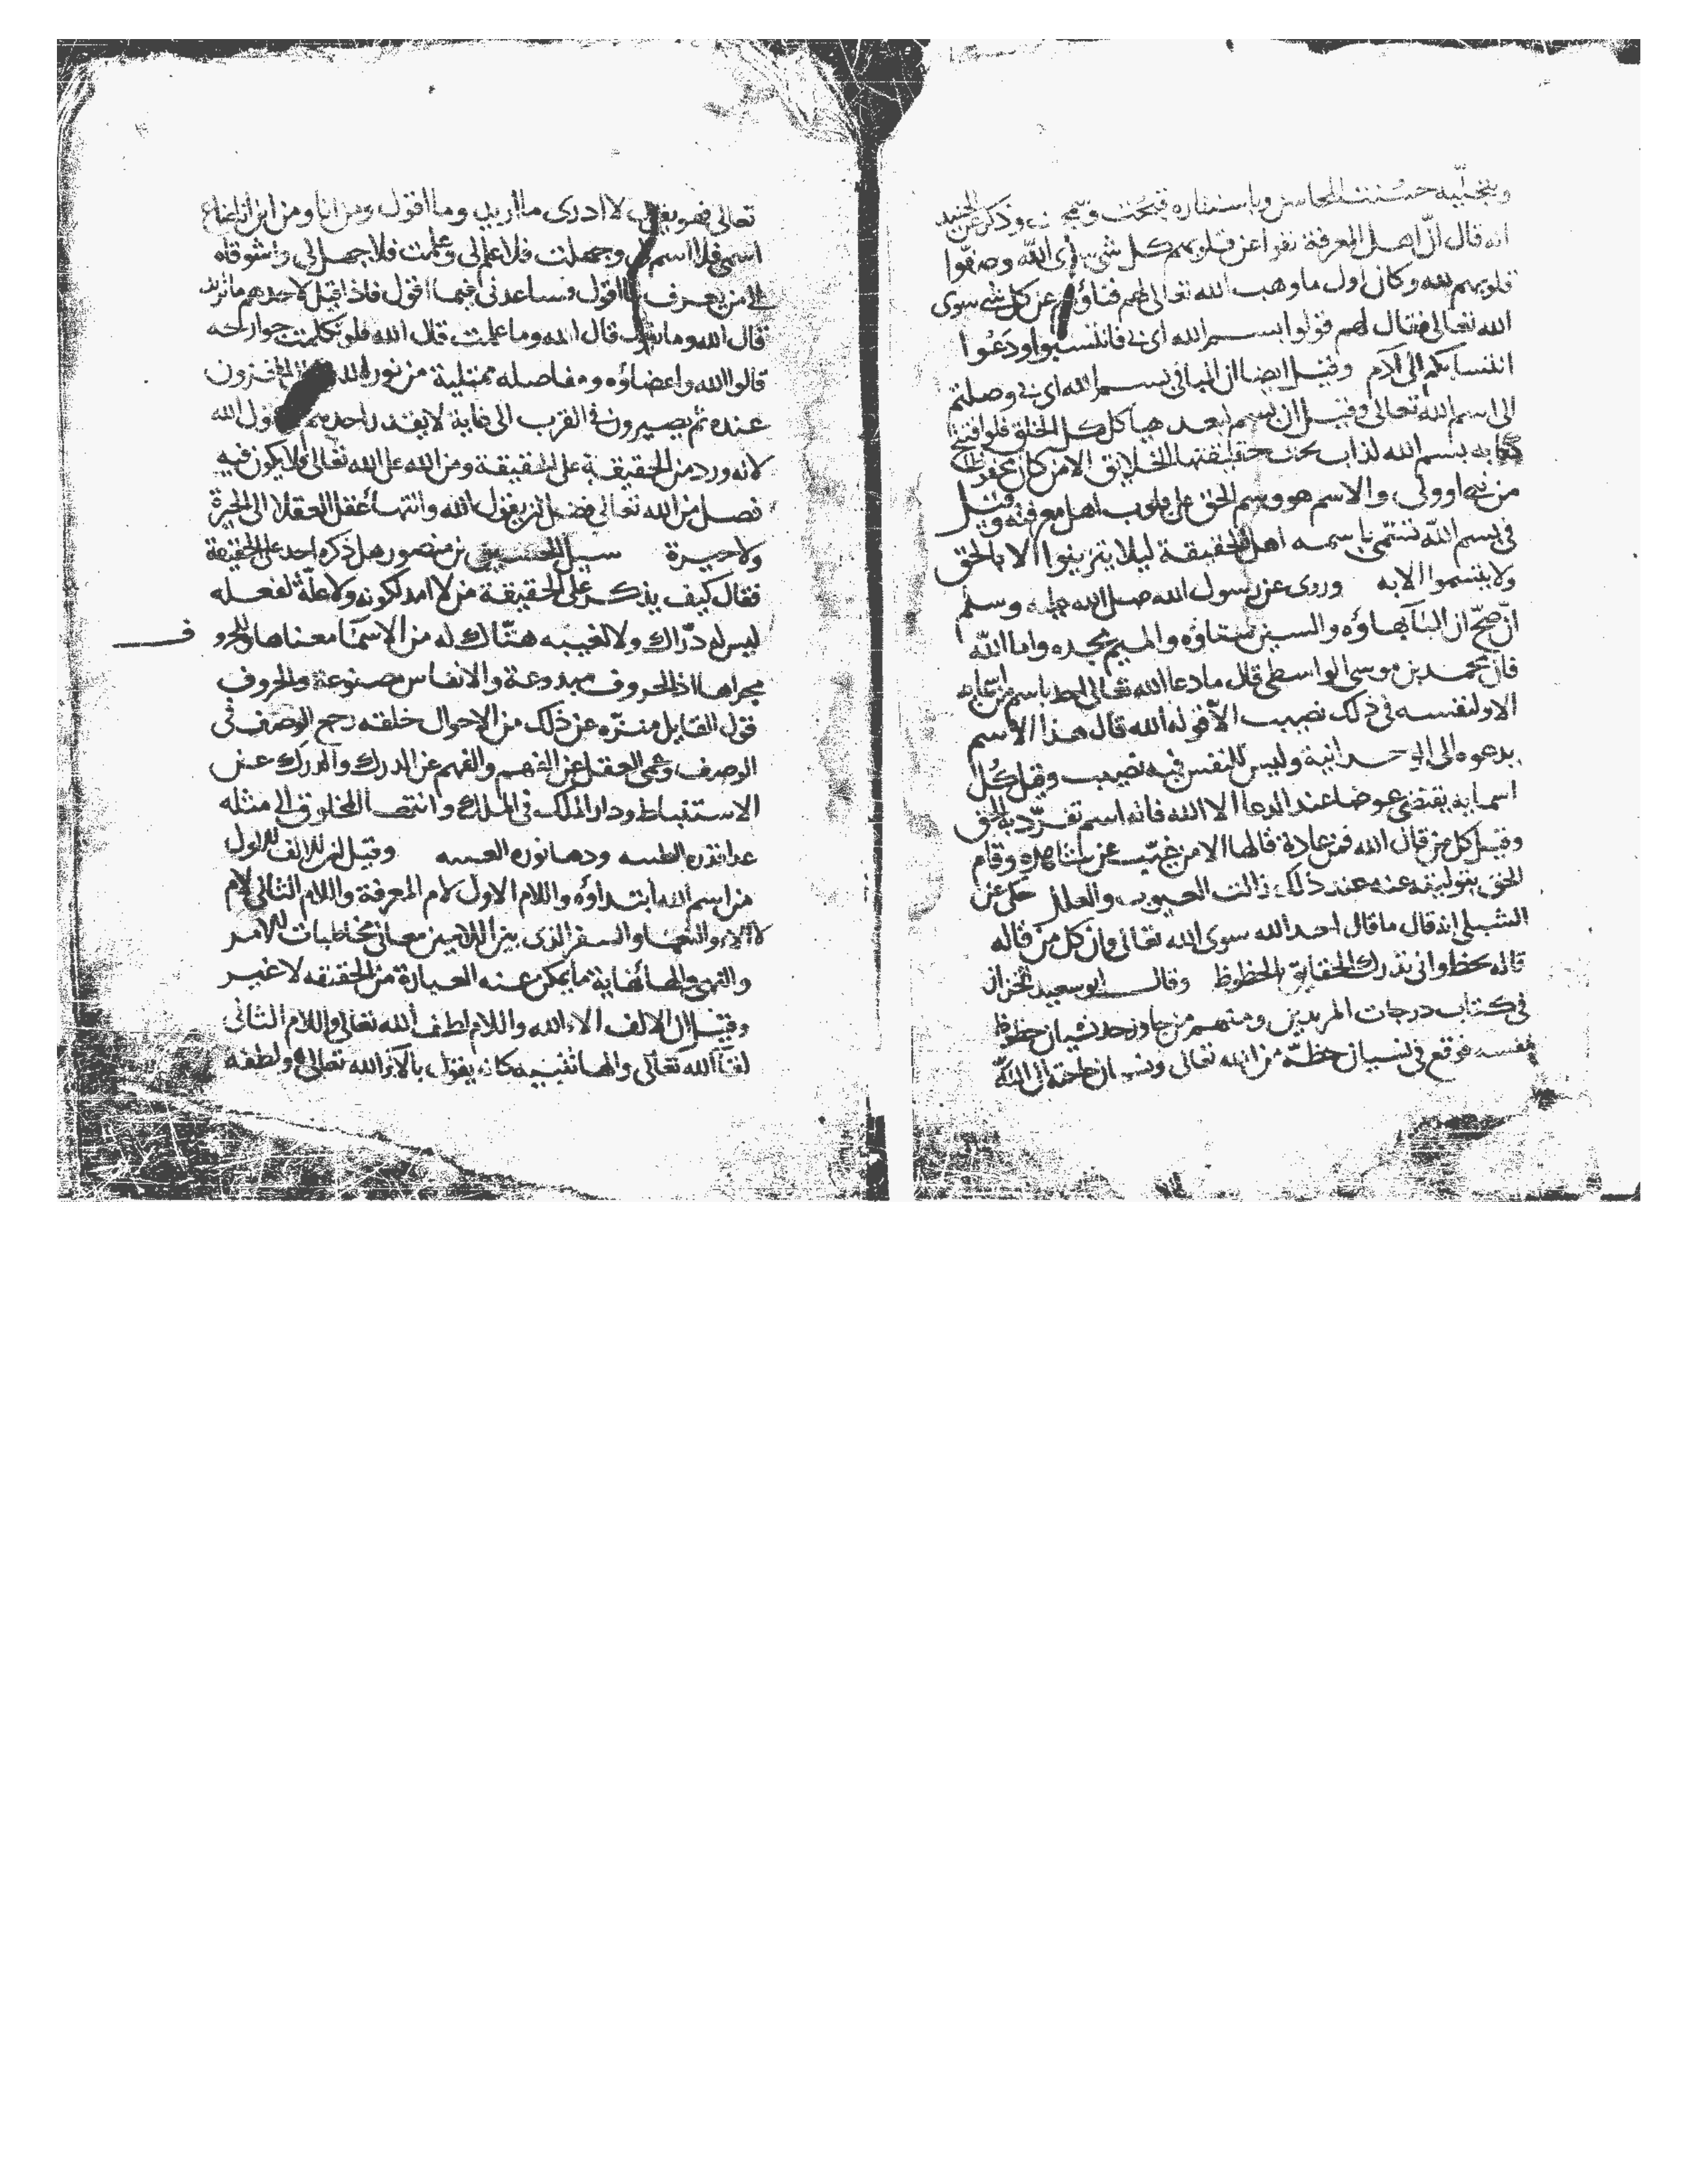 وبتجليه حسنت المحاسن وباستتاره قبحت وسمجت وذكر عن الجنيد
انه قال ان اهل المعرفة نفوا عن قلوبهم كل شىء سوى الله وصفوا
قلوبهم لله وكان اول ما وهب الله تعالى لهم فناؤهم عن كل شىء سوى
الله تعالى فقال لهم قولوا بسم الله اى بى فانتسبوا ودعوا
انتسابكم الى آدم وقيل ايضا ان البا فى بسم الله اى بى وصلتم
الى اسم الله تعالى وقيل ان بسم هياكل الخلق فلو افتتح
كتابه بسم الله لذاب تحت حقيقتها الخلائق الا من كان محفوظا
من نبى او ولى والاسم هو وسم الحق على قلوب اهل معرفته وقيل
فى بسم الله تسمى باسمه اهل الحقيقة ليلا يتزينوا الا بالحق
ولا يتسموا الا به وروى عن رسول الله صلى الله عليه وسلم
ان صح ان الباء بهاؤه والسين سناؤه والميم مجده واما الله
قال محمد بن موسى الواسطى قال ما دعا الله تعالى احد باسم من اسمايه
الا ولنفسه فى ذلك نصيب الا قوله الله قال هذا الاسم
يدعوه الى الوحدانية وليس للنفس فيه نصيب وقيل كل
اسمايه يقتضى عوضا عند الدعا الا الله فانه اسم تفرد به الحق
وقيل كل من قال الله فمن عادة قالها الا من غيب عن شاهده وقام
الحق بتوليته عنه عند ذلك زالت العيوب والعلل حكى عن
الشبلى انه قال ما قال احد الله سوى الله تعالى وان كل من قاله
قاله بحظ وانى تدرك الحقايق بالحظوظ وقال ابو سعيد الخراز
فى كتاب درجات المريدين ومنهم من جاوز حد نسيان حظوظ
نفسه فوقع فى نسيان حظه من الله تعالى ونسيان حاجته الى الله
تعالى فهو يقول لا ادرى ما اريد وما اقول ومن انا ومن اين انا ضاع
اسمى فلا اسم لى وجهلت فلا علم لى وعلمت فلا جهل لى واشوقاه
الى من يعرف ما اقول ويساعدنى فيما اقول فاذا قيل لاحدهم ما تريد
قال الله وما تقول قال الله وما علمت قال الله فلو تكلمت جوارحه
قالوا الله واعضاؤه ومفاصله ممتلية من نور الله المخزون
عنده ثم يصيرون فى القرب الى غاية لا يقدر احد منهم يقول الله
لانه ورد من الحقيقة على الحقيقة ومن الله على الله تعالى ولا يكون فيه
فصل من الله تعالى فضل ان يقول الله وانتها عقل العقلا الى الحيرة
ولا حيرة سيل الحسين بن منصور هل ذكره احد على الحقيقة
فقال كيف يذكر على الحقيقة من لا امد لكونه ولا علة لفعله
ليس له دراك ولا لغيبه هتاك له من الاسما معناها وللحروف
مجراها اذ الحروف مبدوعة والانفاس مصنوعة والحروف
قول القايل منزه عن ذلك من الاحوال خلقه رجع الوصف فى
الوصف وعمى العقل عن الفهم والفهم عن الدرك والدرك عن
الاستنباط ودار الملك فى الملك وانتهى المخلوق الى مثله
وقيل ان الالف الاول
من اسم الله ابتداؤه واللام الاول لام المعرفة واللام الثانى لام
الآلاء والنعما والسطر الذى بين اللامين معانى مخاطبات الامر
والنهى والها نهاية ما يمكن عنه العبارة من الحقيقه لا غير
وقيل ان الالف الاء الله واللام لطف الله تعالى واللام الثانى
لقاء الله تعالى والها تنبيه كانه يقول بالآء الله تعالى ولطفه